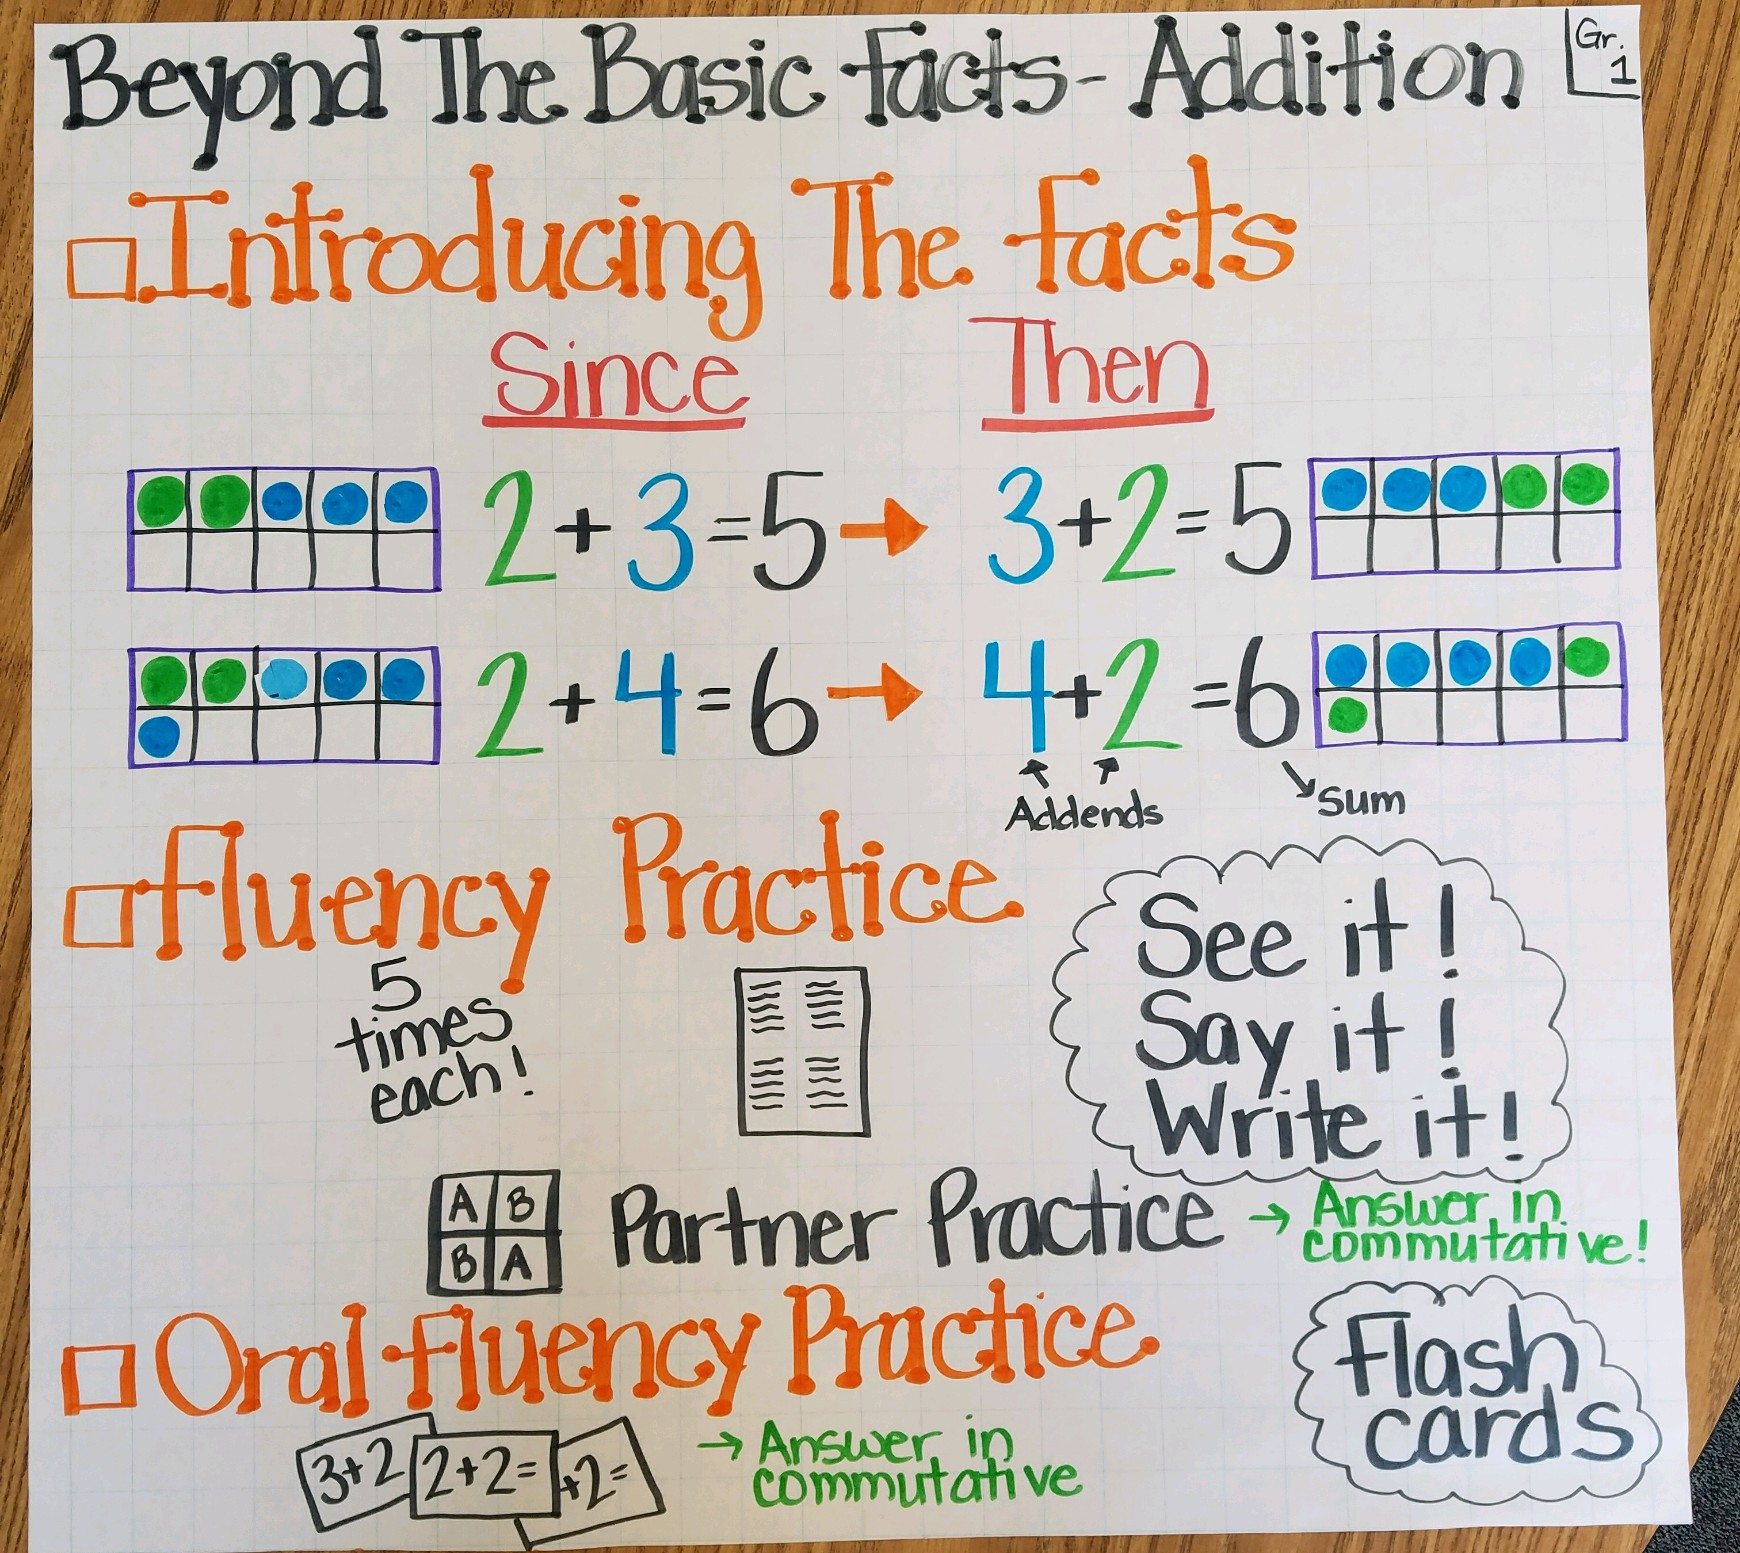 Beyond The Basic Facts - Addition
Gr. 1
Introducing The Facts
Since
Then
2 + 3 = 5
3 + 2 = 5
2 + 4 = 6
4 + 2 = 6
Addends
Sum
Fluency Practice
5
times
each!
See it!
Say it!
Write it!
A B
B A
Partner Practice
→ Answer in
commutative!
Oral Fluency Practice
Flash
cards
3+2
2+2=
+2=
→ Answer in
commutative